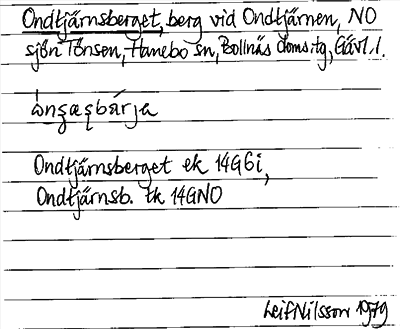 Ondtjärnsberget, berg vid Ondtjärnen, NO
sjön Tönsen, Hanebo sn, Bollnäs doms:tg, Gävl. l.
Ondtjärnsberget ek 14G6i,
Ondtjärnsb. tk 14GNO
Leif Nilsson 1979